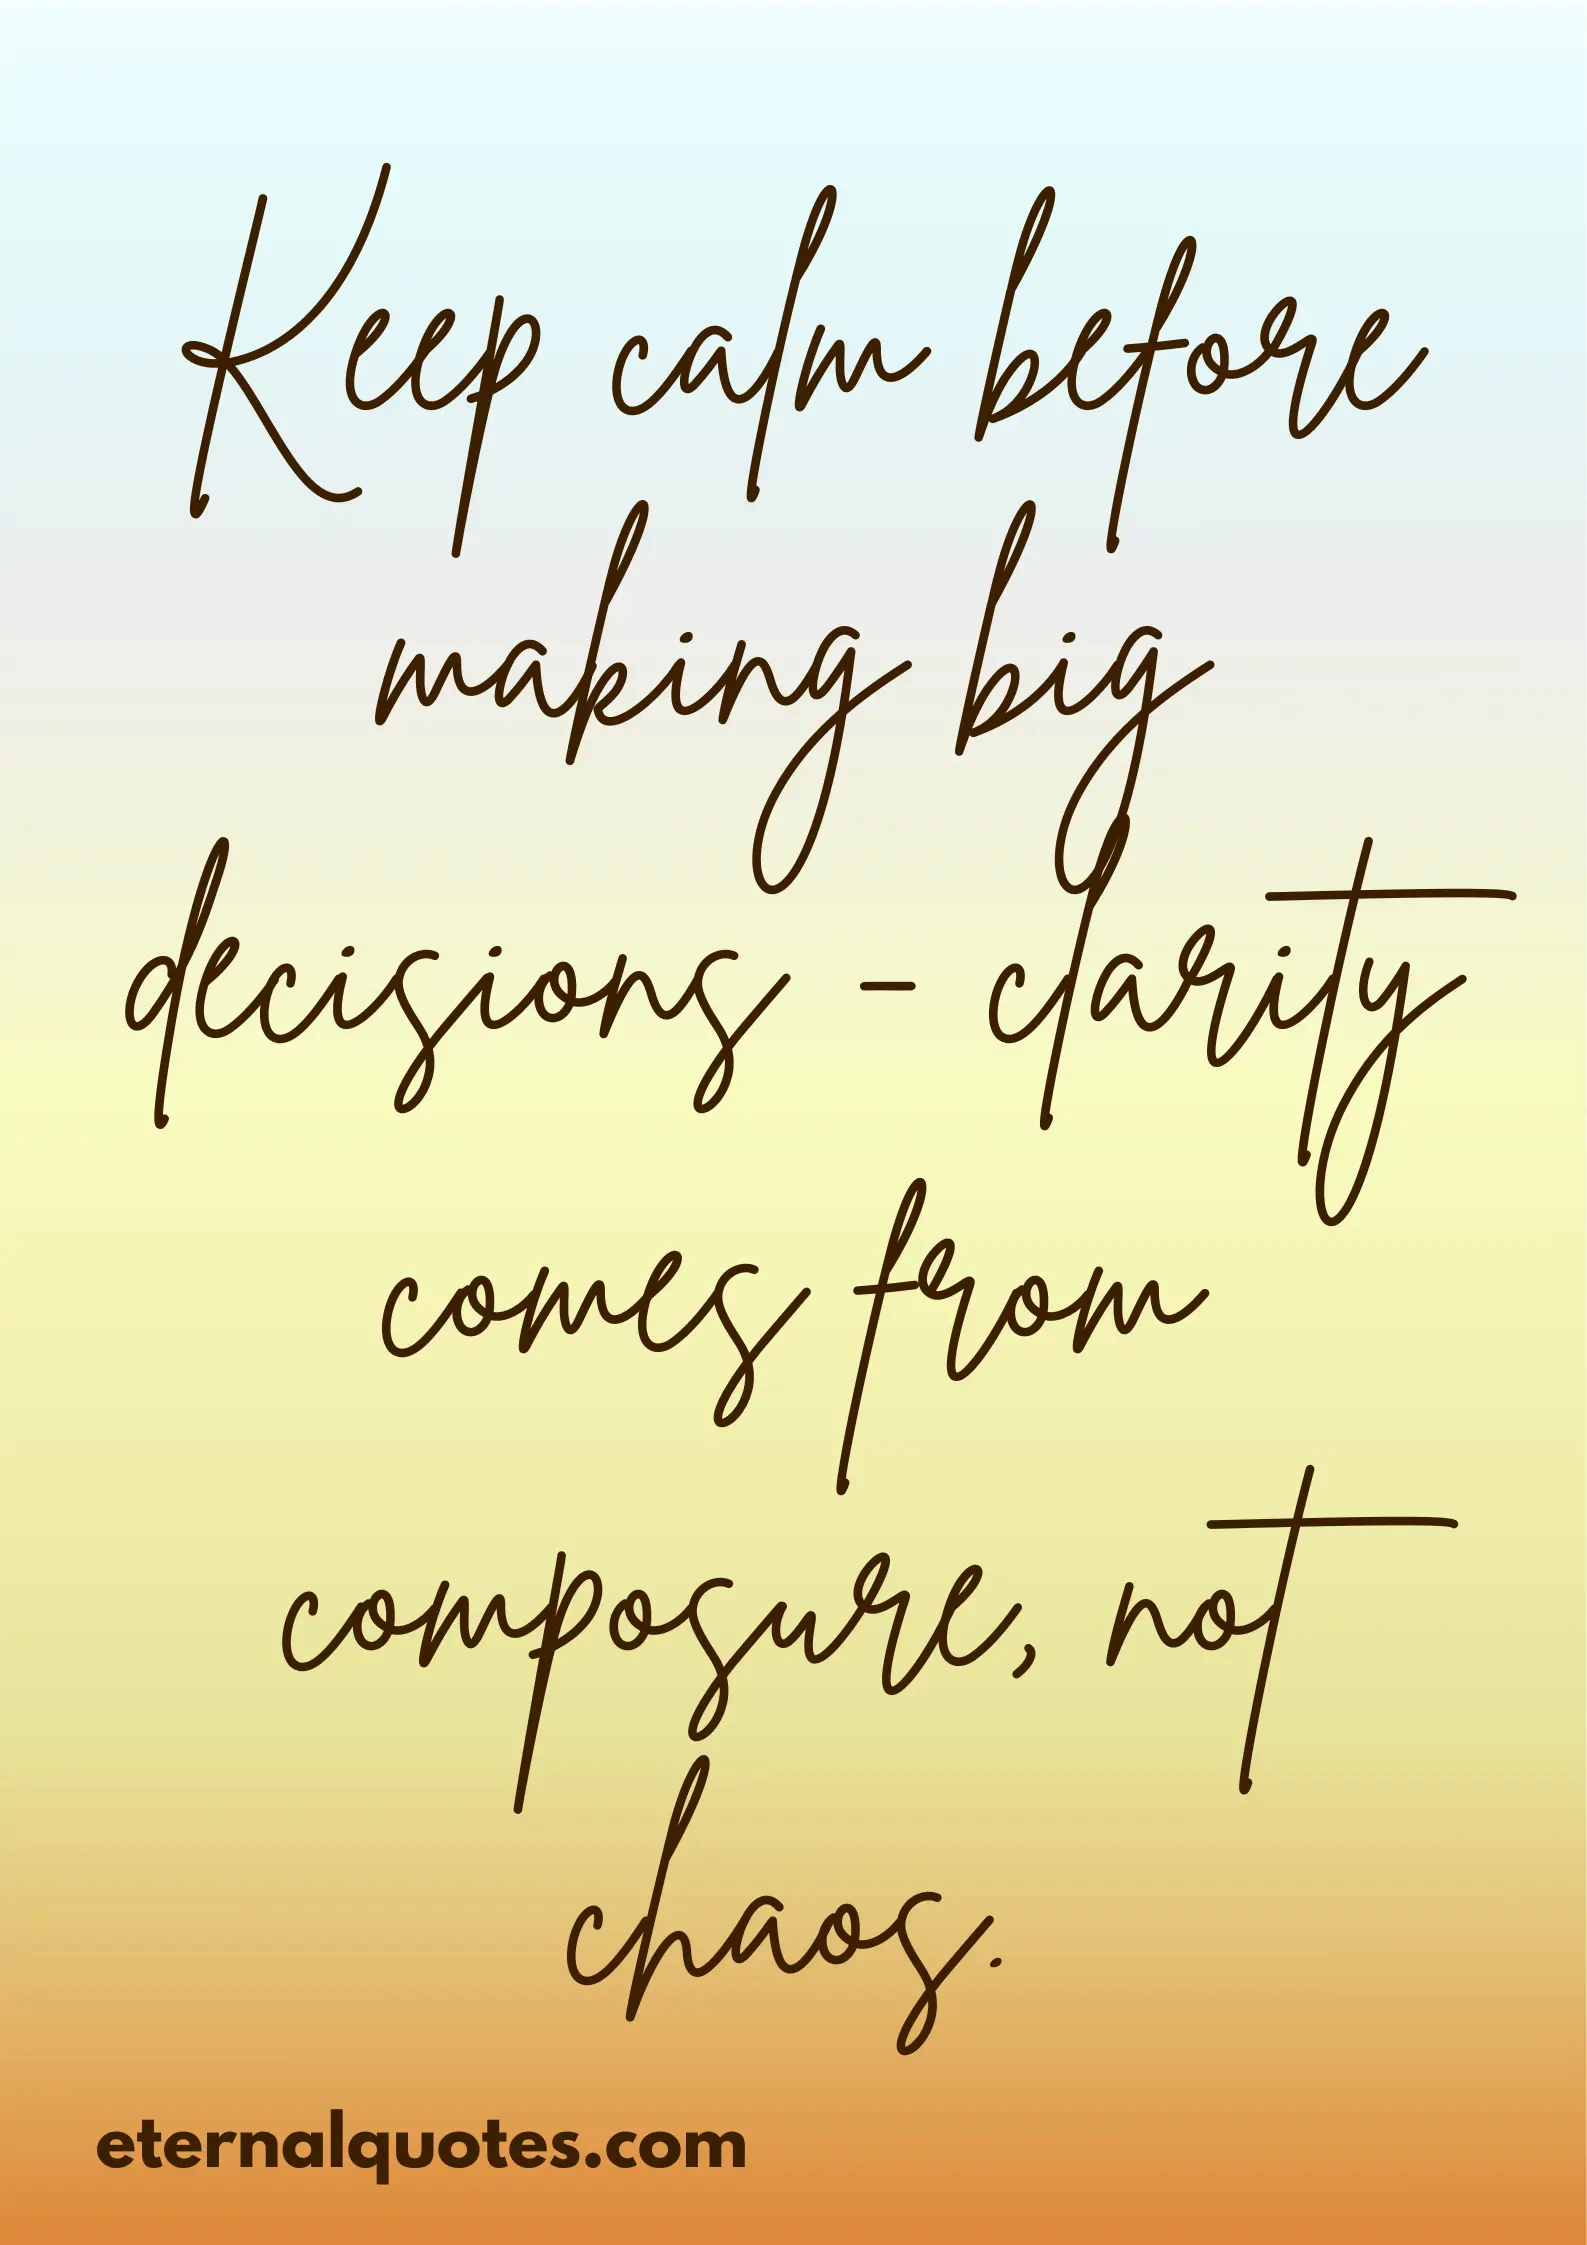 Keep calm before
making big
decisions - clarity
comes from
composure, not
chaos.
eternalquotes.com